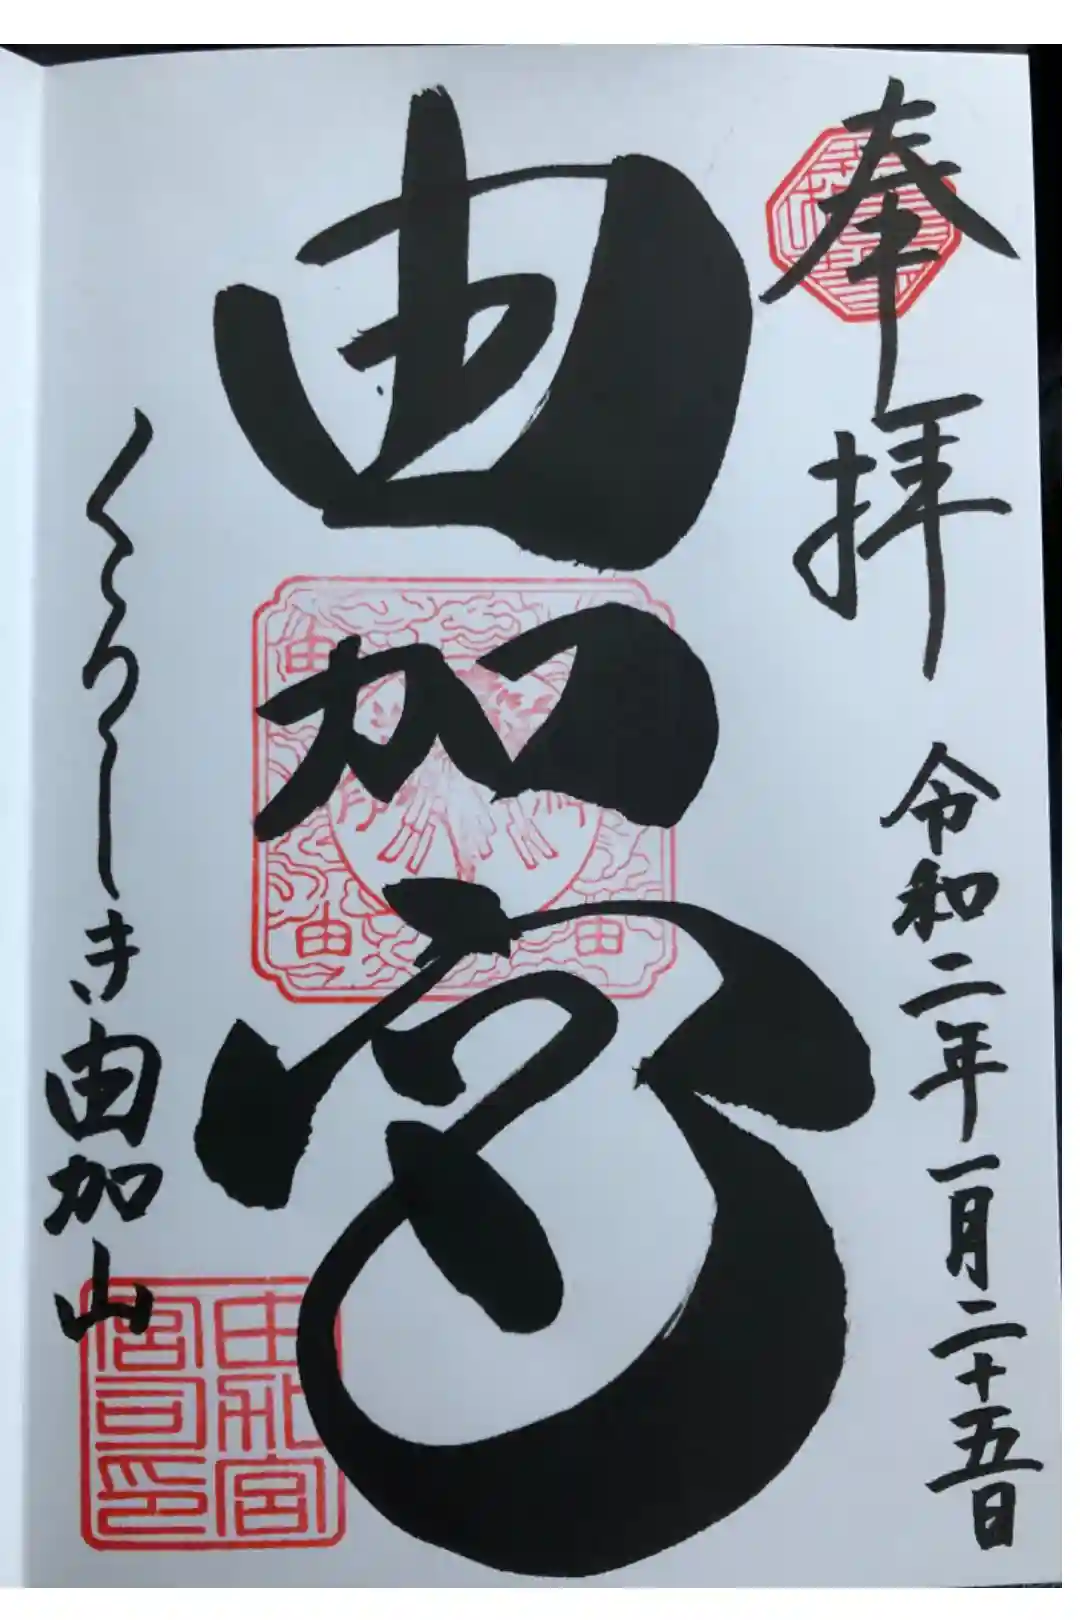 奉拝
令和二年一月二十五日
由加宮
くらしき由加山
由加宮
宮司印
由
由
由